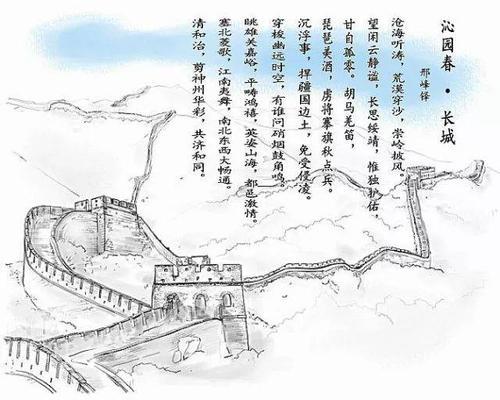 沁园春·长城
邢峰铎
沧海听涛，荒漠穿沙，崇岭披风。
望闲云静谧，长思绥靖，惟独护佑，
甘自孤零。胡马羌笛，
琵琶美酒，虏将搴旗秋点兵。
沉浮事，捍疆国边土，免受侵凌。
穿梭幽远时空，有谁问硝烟鼓角鸣。
眺雄关嘉峪，平畴鸿禧，英姿山海，都邑激情。
塞北菱歌，江南夷舞，南北东西大畅通。
清和治，剪神州华彩，共济和同。